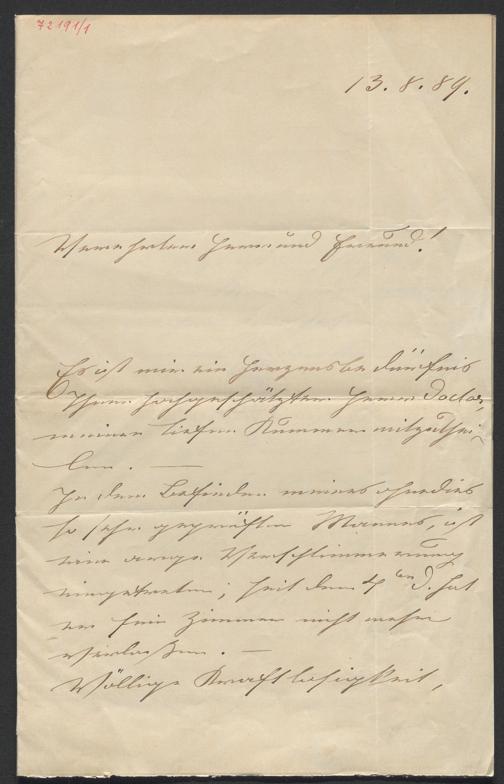 72191/1
13. 8. 89.
Verehrter Herr und Freund!
Es ist mir ein Herzensbedürfnis
Ihnen hochgeschätzter Herr Doctor,
meinen tiefen Kummer mitzuthei-
len. —
In dem Befinden meines ohnedies
so sehr geprüften Mannes, ist
eine arge Verschlimmerung
eingetreten; seit dem 4ten d. hat
er sein Zimmer nicht mehr
verlaßen. —
Völlige Kraftlosigkeit,